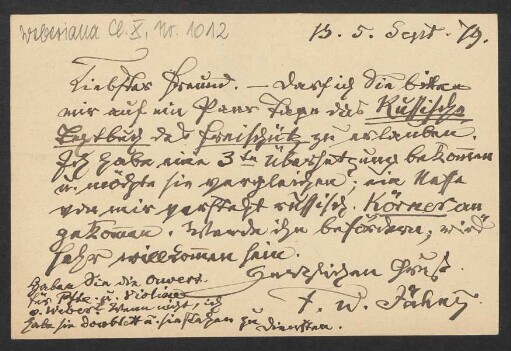 Weberiana Cl. X, Nr. 1012
B. 5. Sept. 79.
Liebster Freund. — Darf ich Sie bitten
mir auf ein Paar Tage das Russische
Textbuch des Freischütz zu erlauben.
Ich habe eine 3te Übersetzung bekommen
u. möchte sie vergleichen; ein Neffe
von mir versteht russisch. Körner an
gekommen. Werde ihn befördern; wird
sehr willkommen sein.
Herzlichen Gruß.
F. W. Jähns.
Haben Sie die Ouvert.
für Pfte. u. Violine
v. Weber? Wenn nicht, ich
habe sie doublett u. sie stehen zu Diensten.